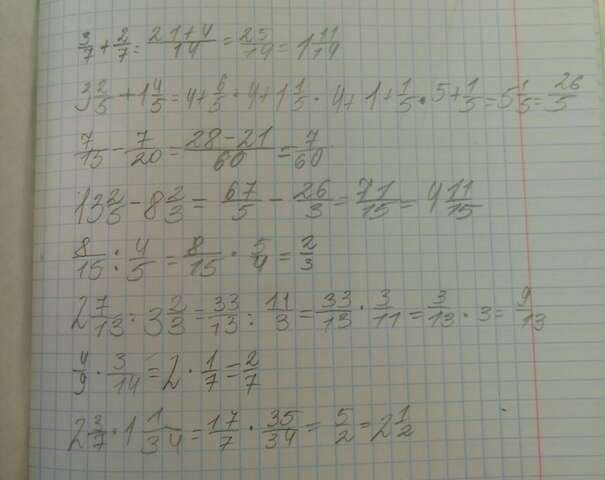 3/7 + 2/7 = 21+4/14 = 25/14 = 1 11/14
3 2/5 + 1 4/5 = 4 + 6/5 · 4 + 1 1/5 · 4 + 1 + 1/5 · 5 + 1/5 = 5 1/5 = 26/5
7/15 - 7/20 = 28-21/60 = 7/60
13 2/5 - 8 2/3 = 67/5 - 26/3 = 71/15 = 4 11/15
8/15 : 4/5 = 8/15 · 5/4 = 2/3
2 7/13 : 3 2/3 = 33/13 : 11/3 = 33/13 · 3/11 = 3/13 · 3 = 9/13
4/9 · 3/14 = 2 · 1/7 = 2/7
2 3/7 · 1 1/34 = 17/7 · 35/34 = 5/2 = 2 1/2